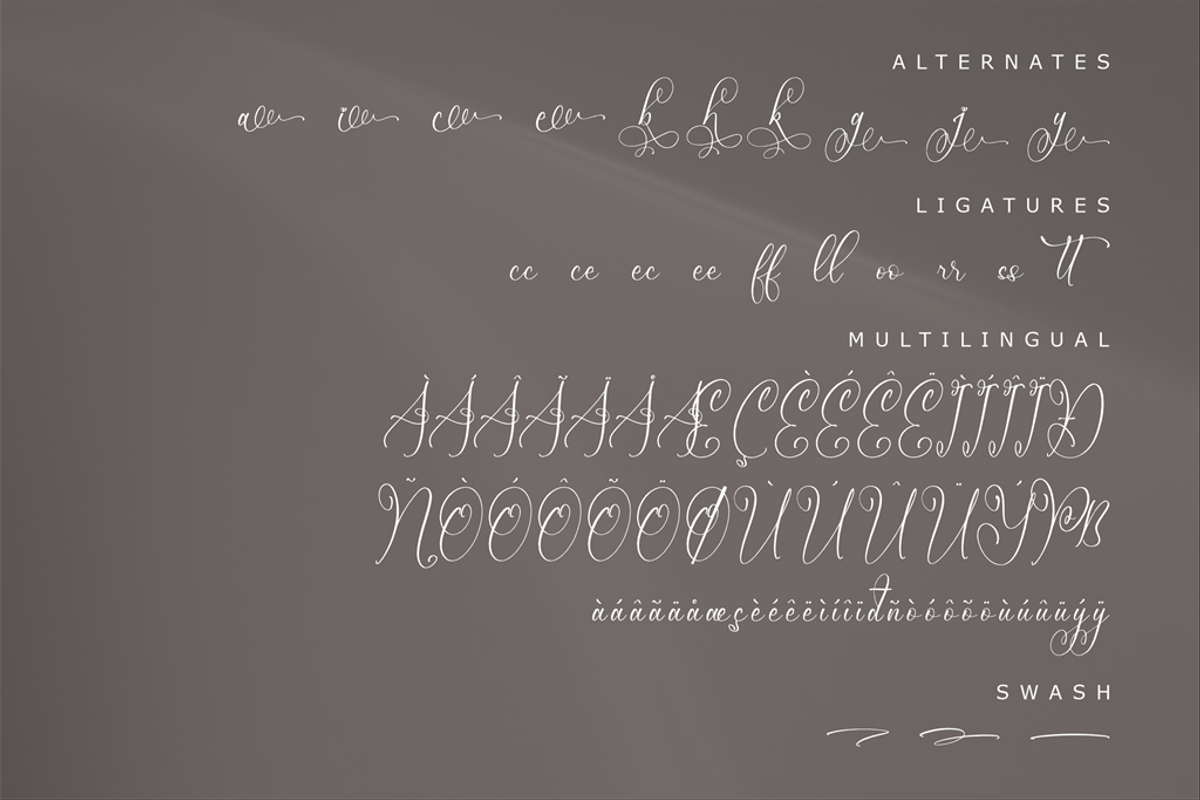 ALTERNATES
a i c e b h k g j y
LIGATURES
cc ce ec ee ff ll oo rr ss tt
MULTILINGUAL
ÀÁÂÃÄÅÆÇÈÉÊËÌÍÎÏÐ
ÑÒÓÔÕÖØÙÚÛÜÝÞß
àáâãäåæçèéêëìíîïđñòóôõöùúûüýÿ
SWASH